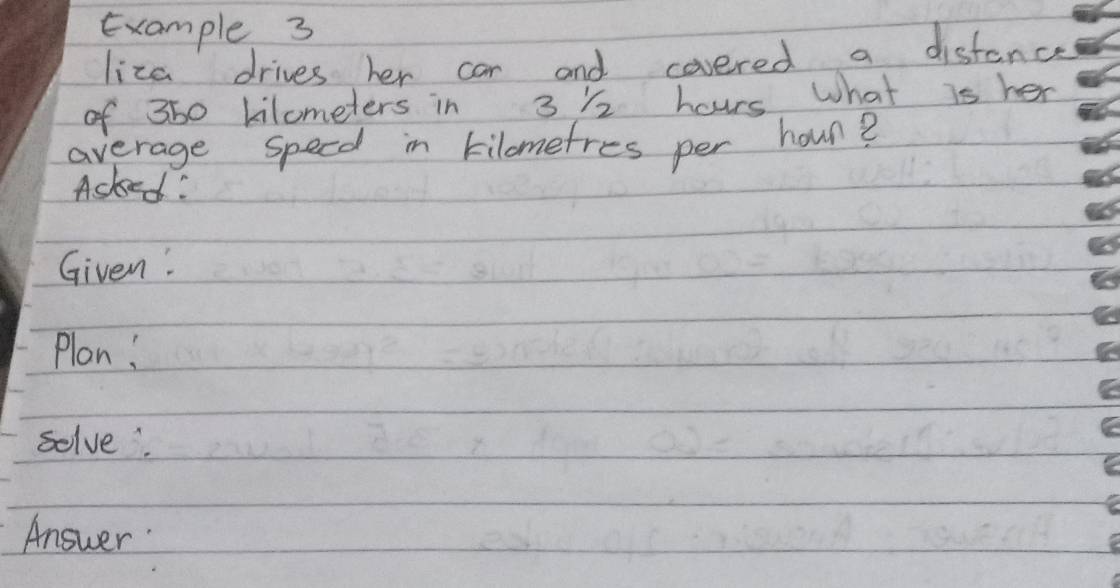 Example 3
liza drives her car and covered a distance
of 350 kilometers in 3 1/2 hours What is her
average speed in kilometres per hour?
Asked:
Given:
Plan:
Solve:
Answer: